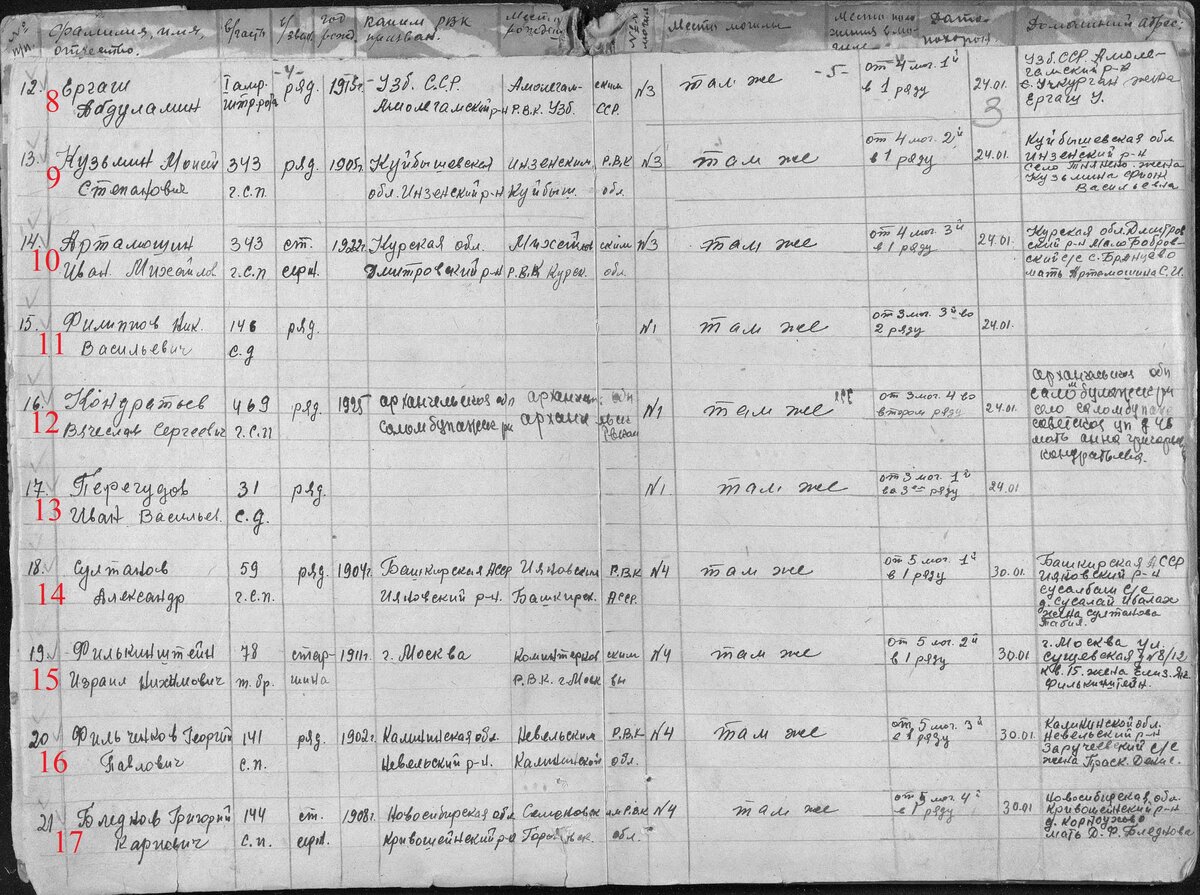 № п/п. Фамилия, имя, отчество. В/часть в/зван. год рожд. каким РВК призван. Место рожден №№ могил Место могили Место положения в могиле Дата похорон. Домашний адрес:
12. Ергаш I гапр. -"- ряд. 1915г. Узб. С.С.Р. №3 там же -5- от 4 мог. 1й 24.01. Узб. ССР.
8 Абдуламин р-н Р.В.К. Узб. ССР. в 1 ряду 3 р-н
жена
Ергаш У.
13. Кузьмин Моисей 343 ряд. 1905г. Куйбышевская Инзенским Р.В.К №3 там же от 4 мог. 2й 24.01. Куйбышевская обл
9 Степанович г.с.п. обл. Инзенский р-н Куйбыш. обл. в 1 ряду Инзенский р-н
село жена
Кузьмина
Васильевна
14. Артамошин 343 ст. 1922г. Курская обл. ским №3 там же от 4 мог. 3й 24.01. Курская обл. Дмитров
10 Иван Михайлов г.с.п серж. Дмитровский р-н Р.В.К Курск. обл. в 1 ряду ский р-н Мало Бобров-
ский с/с с. Брянцево
мать Артамошина С.И.
15. Филиппов Ник. 146 ряд. №1 там же от 3 мог. 3й во 24.01.
11 Васильевич с.д 2 ряду
16. Кондратьев 469 ряд. 1925 архангельская обл №1 там же от 3 мог. 4 во 24.01. архангельская обл
12 Вячеслав Сергеевич г.с.п втором ряду
советская
мать анна григорь
кондратьева.
17. Перегудов 31 ряд. №1 там же от 3 мог. 1й 24.01
13 Иван Васильев. с.д. во 3ем ряду
18. Султанов 59 ряд. 1904г. Башкирская АССР Ияновским Р.В.К №4 там же от 5 мог. 1й 30.01. Башкирская АССР
14 Александр г.с.п. Ияновский р-н. Башкирск. АССР. в 1 ряду Ияновский р-н
с/с
д. Сусалай
жена Султанова
Табия.
19. Филькинштейн 78 стар- 1911г. г. Москва Коминтернов ским №4 там же от 5 мог. 2й 30.01 г. Москва ул.
15 Израил Нихимович т.бр. шина Р.В.К. г. Моск вы в 1 ряду Сущевская д №8/12
кв. 15. жена Елиз. Як.
Филькинштейн.
20 Фильченков Георгий 141 ряд. 1902г. Калининская обл. Невельским Р.В.К №4 там же от 5 мог. 3й 30.01. Калининской обл.
16 Павлович с.п. Невельский р-н. Калининской обл. в 1 ряду Невельский р-н
Заручаевский с/с
жена Праск. Денис.
21 Бледнов Григорий 144 ст. 1908г. Новосибирская обл Р.В.К №4 там же от 5 мог. 4й 30.01 Новосибирская обл.
17 Карпович с.п. серж. Кривошеинский р-н обл. в 1 ряду Кривошеинский р-н
мать Д.Ф. Бледнова